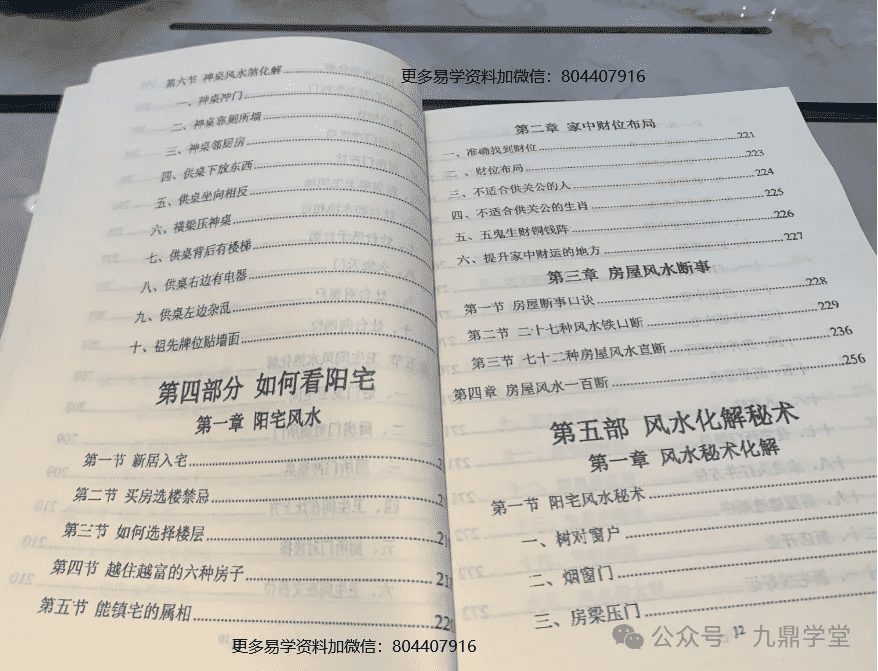 更多易学资料加微信：804407916
第六节 神桌风水煞化解
一、神桌冲门
二、神桌靠厕所墙
三、神桌邻厨房
四、供桌下放东西
五、供桌坐向相反
六、横梁压神桌
七、供桌背后有楼梯
八、供桌右边有电器
九、供桌左边杂乱
十、祖先牌位贴墙面
第四部分 如何看阳宅
第一章 阳宅风水
第一节 新居入宅
第二节 买房选楼禁忌
第三节 如何选择楼层
第四节 越住越富的六种房子
第五节 能镇宅的属相
第二章 家中财位布局
一、准确找到财位 221
二、财位布局 223
三、不适合供关公的人 224
四、不适合供关公的生肖 225
五、五鬼生财铜钱阵 226
六、提升家中财运的地方 227
第三章 房屋风水断事
第一节 房屋断事口诀 228
第二节 二十七种风水铁口断 229
第三节 七十二种房屋风水直断 236
第四章 房屋风水一百断 256
第五部 风水化解秘术
第一章 风水秘术化解
第一节 阳宅风水秘术
一、树对窗户
二、烟窗门
三、房梁压门
12
更多易学资料加微信：804407916
公众号 · 九鼎学堂